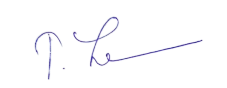 T. Le